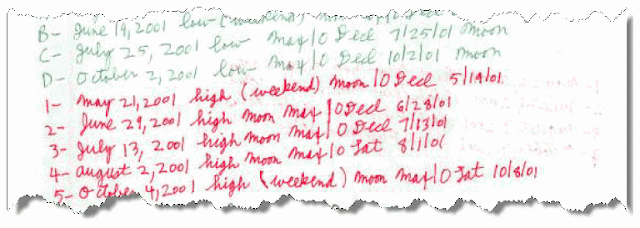 B- June 19, 2001 low (weekend) moon
C- July 25, 2001 low max/0 Decl 7/25/01 moon
D- October 2, 2001 low- max/0 Decl 10/2/01 moon
1- may 21, 2001 high (weekend) moon/0 Decl 5/19/01
2- June 29, 2001 high moon max/0 Decl 6/28/01
3- July 13, 2001 high moon max/0 Decl 7/13/01
4- august 2, 2001 high moon max/0 Lat 8/1/01
5- October 4, 2001 high (weekend) moon max/0 Lat 10/8/01